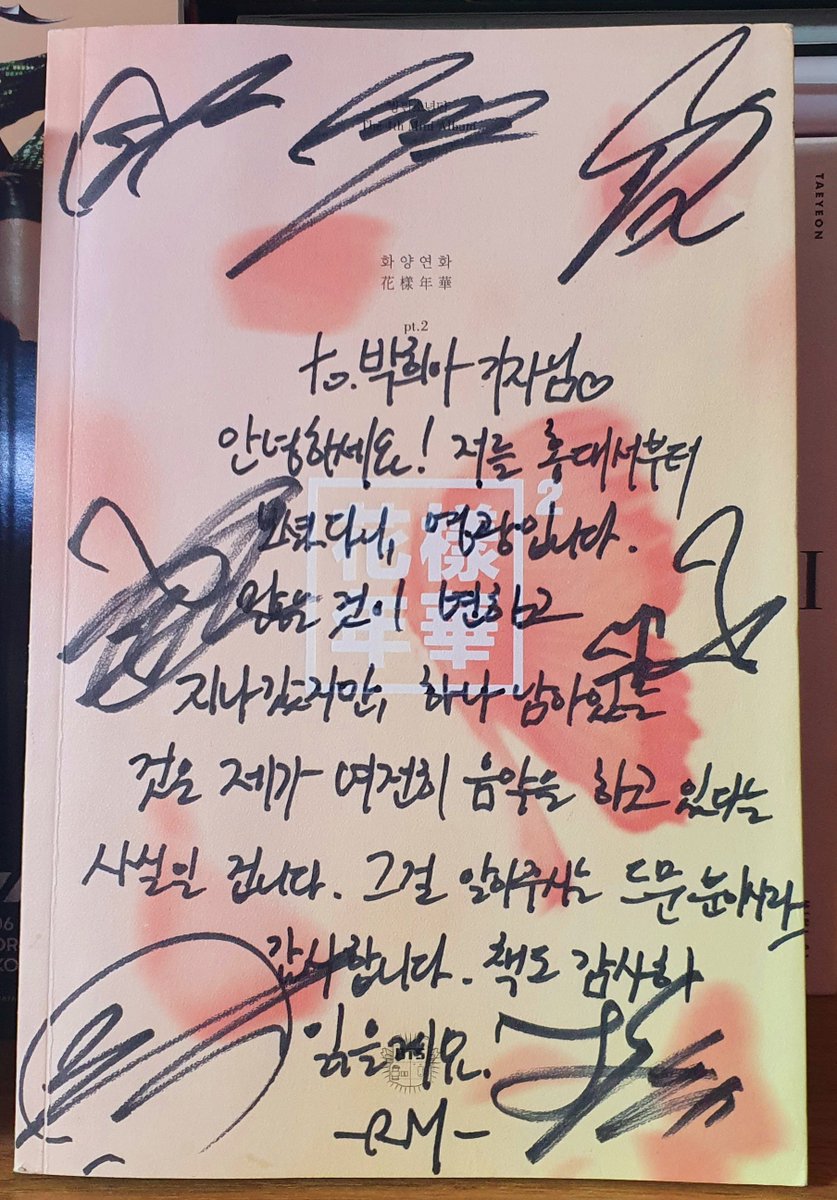 방탄소년단
The 4th Mini Album
화양연화
花樣年華
pt.2
to. 박희아 기자님♡
안녕하세요! 저를 홍대서부터
보셨다니, 영광입니다.
많은 것이 변하고
지나갔지만, 하나 남아있는
것은 제가 여전히 음악을 하고 있다는
사실일 겁니다. 그걸 알아주시는 드문 분이시라
감사합니다. 책도 감사히
읽을게요.
-RM-
花樣
年華
2
BTS
TAEYEON